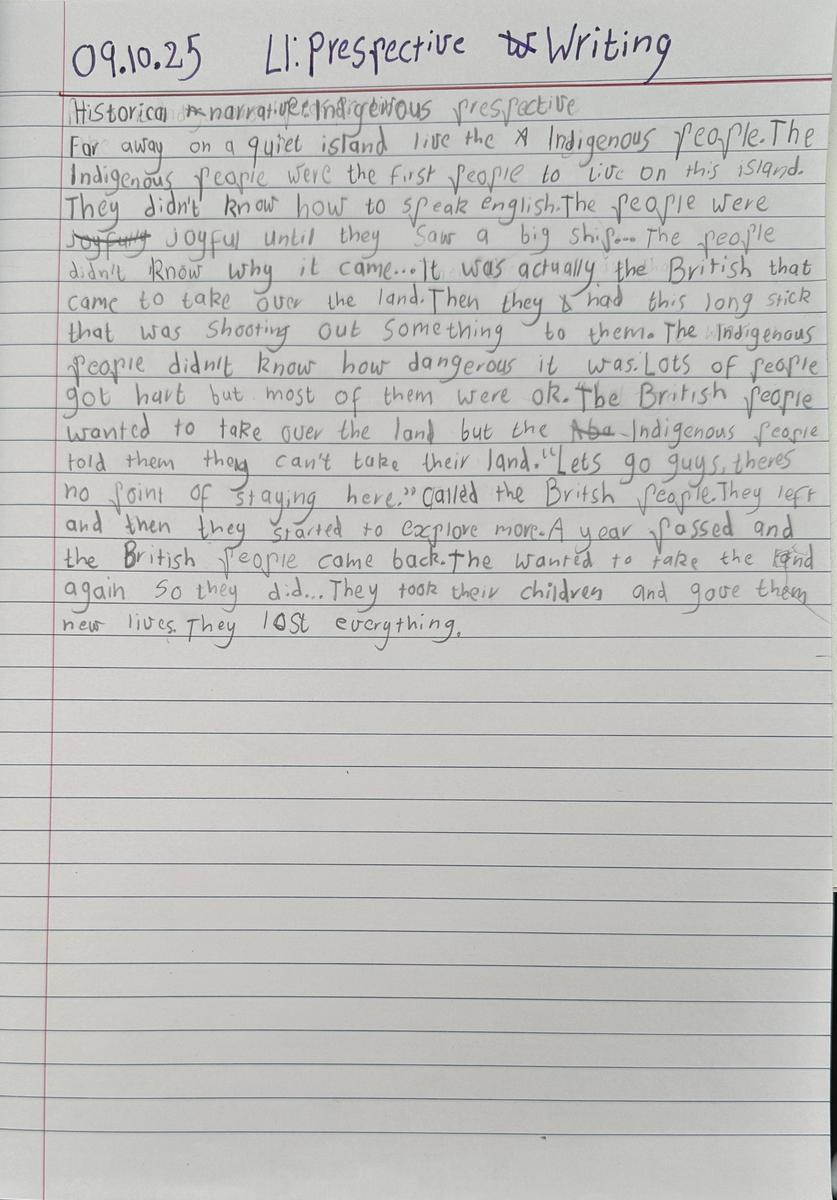 09.10.25 LI: Prespective Writing
Historical narrative: Indigenous prespective
Far away on a quiet island live the Indigenous people. The
Indigenous people were the first people to live on this island.
They didn't know how to speak english. The people were
joyful until they saw a big ship... The people
didn't know why it came... It was actually the British that
came to take over the land. Then they had this long stick
that was shooting out something to them. The Indigenous
people didn't know how dangerous it was. Lots of people
got hart but most of them were ok. The British people
wanted to take over the land but the Indigenous people
told them they can't take their land. "Lets go guys, theres
no point of staying here." called the Britsh people. They left
and then they started to explore more. A year passed and
the British people came back. The wanted to take the land
again so they did... They took their children and gave them
new lives. They lost everything.